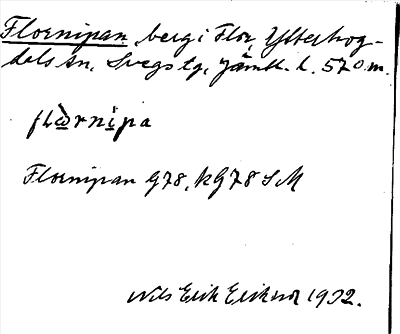 Flornipan, berg i Flor, Ytterhog-
dals sn, Svegs tg, Jämtl. l. 570 m.
flo̠rni̠pa
Flornipan G78, kG78 SM
Nils Erik Erikson 1932.